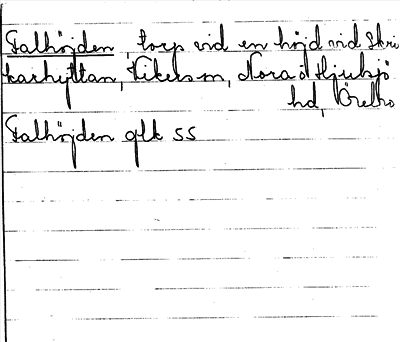 Falhöjden, torp vid en höjd vid Skri
karhyttan, Vikers sn, Nora o Hjulsjö
hd, Örebro
Falhöjden glk SS